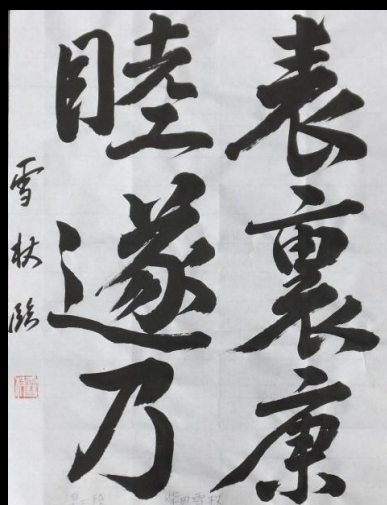 表裏康
睦遂乃
雪杖臨